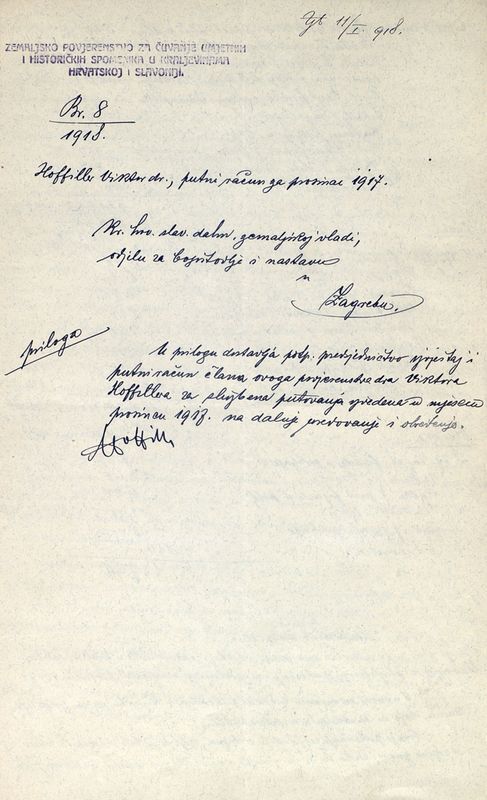 11/I 918.
ZEMALJSKO POVJERENSTVO ZA ČUVANJE UMJETNIH
I HISTORIČKIH SPOMENIKA U KRALJEVINAMA
HRVATSKOJ I SLAVONIJI.
Br. 8
1918.
Hoffiller Viktor dr., putni račun za prosinac 1917.
Kr. hrv. slav. dalm. zemaljskoj vladi,
odjelu za bogoštovlje i nastavu
u
Zagrebu.
priloga
U prilogu dostavlja potp. predsjedništvo izvještaj i
putni račun člana ovoga povjerenstva dra Viktora
Hoffillera za službena putovanja izvedena u mjesecu
prosincu 1917. na dalnje uredovanje i određenje.
Hoffiller